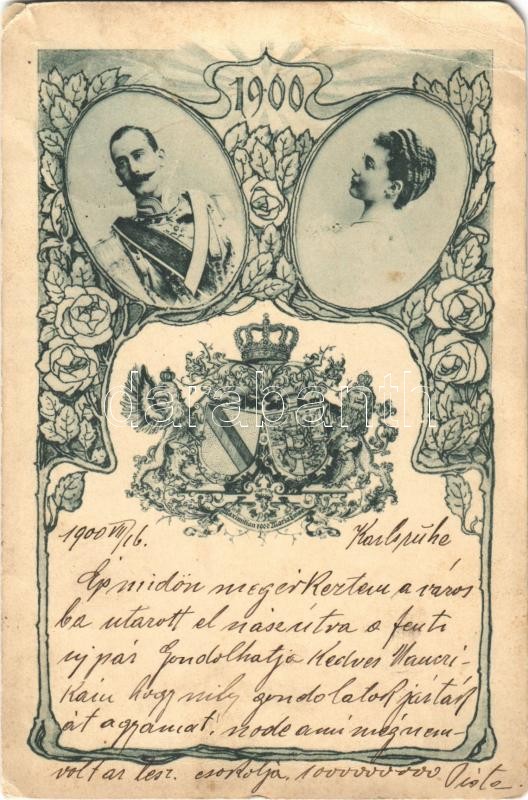 1900
darabanth
Maximilian 1900 Marie
1900 VII/16. Karlsruhe
Ép midőn megérkeztem a város
ba utazott el nászútra a fenti
uj pár Gondolhatja Kedves
Kám hogy mily gondolatok járták
át agyamat, no de ami még nem
volt az lesz. csokolja. 1000000000